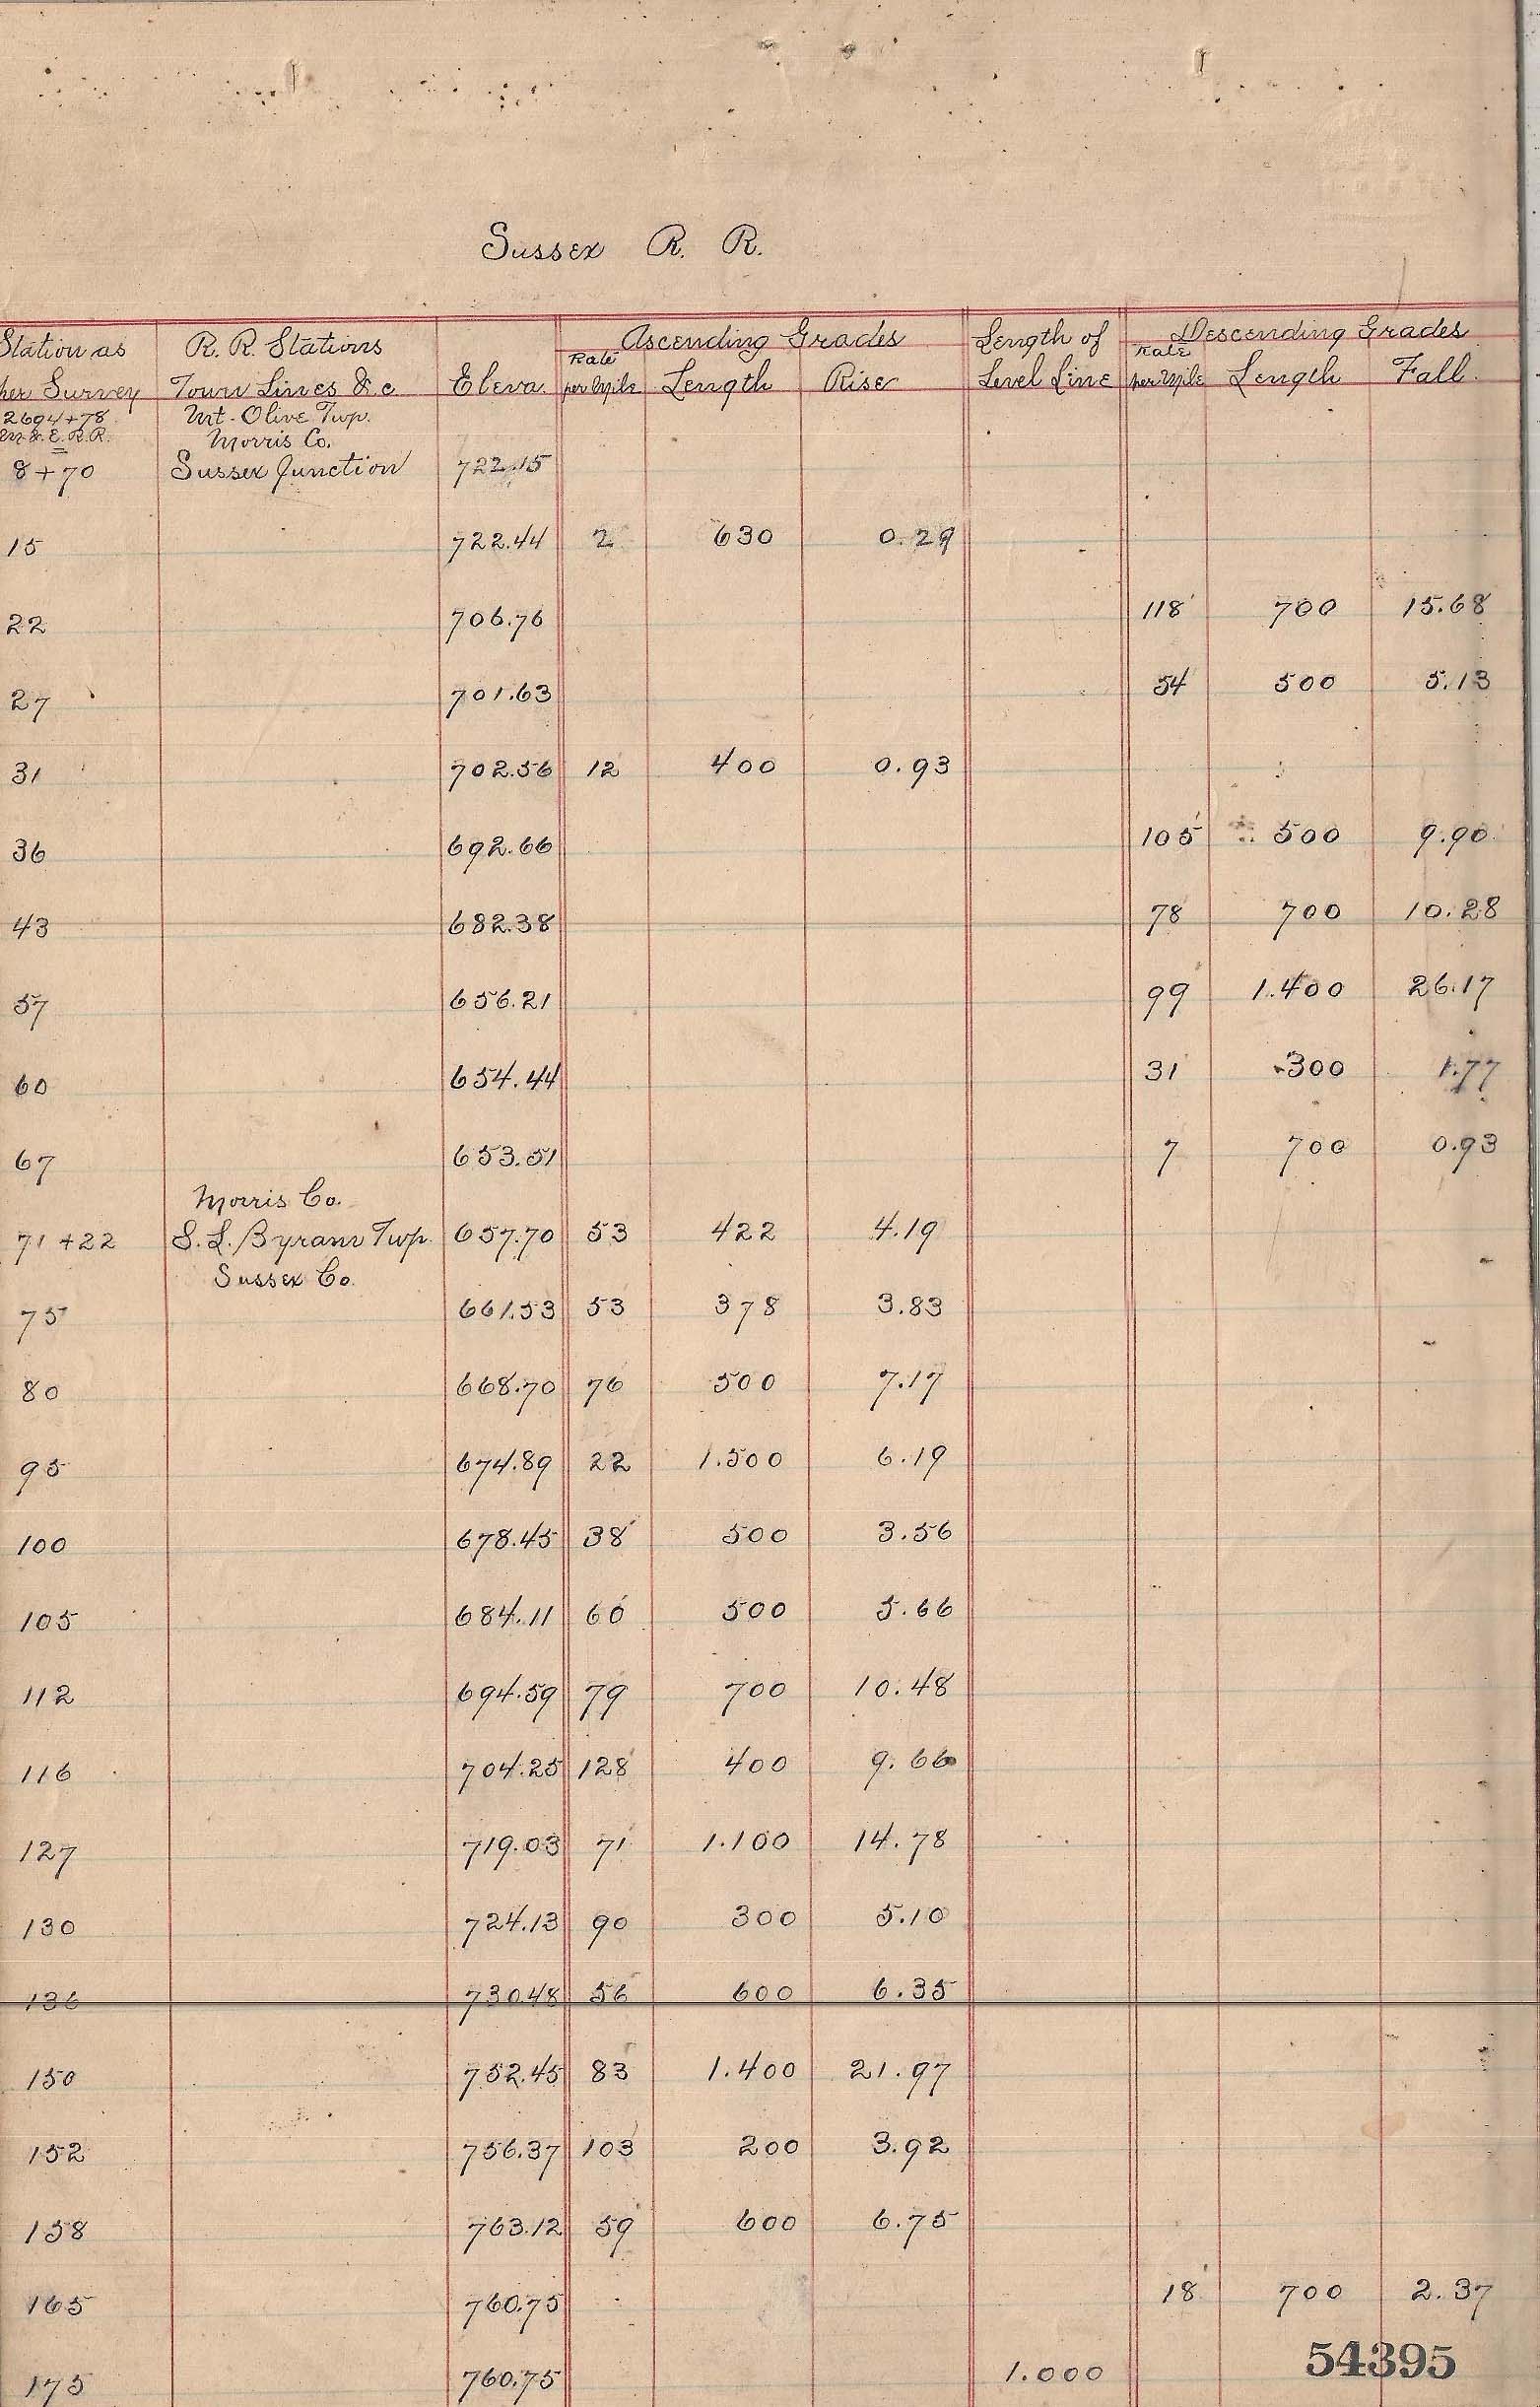 Sussex R. R.
Station as R. R. Stations Eleva. Ascending Grades Length of Descending Grades
per Survey Town Lines &c Rate per Mile Length Rise Level Line Rate per Mile Length Fall.
2694+78 Mt. Olive Twp.
M. & E. R.R. Morris Co.
=
8+70 Sussex Junction 722.15
15 722.44 2 630 0.29
22 706.76 118 700 15.68
27 701.63 54 500 5.13
31 702.56 12 400 0.93
36 692.66 105 500 9.90
43 682.38 78 700 10.28
57 656.21 99 1.400 26.17
60 654.44 31 300 1.77
67 653.51 7 700 0.93
Morris Co.
71+22 S. L. Byram Twp. 657.70 53 422 4.19
Sussex Co.
75 661.53 53 378 3.83
80 668.70 76 500 7.17
95 674.89 22 1.500 6.19
100 678.45 38 500 3.56
105 684.11 60 500 5.66
112 694.59 79 700 10.48
116 704.25 128 400 9.66
127 719.03 71 1.100 14.78
130 724.13 90 300 5.10
136 730.48 56 600 6.35
150 752.45 83 1.400 21.97
152 756.37 103 200 3.92
158 763.12 59 600 6.75
165 760.75 18 700 2.37
175 760.75 1.000
54395